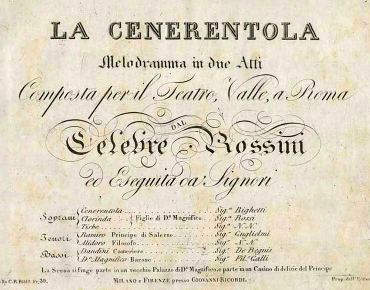 LA CENERENTOLA
Melodramma in due Atti
Composta per il Teatro Valle, a Roma
DAL
Celebre Rossini
ed Eseguita da' Signori
Soprani Cenerentola Sigª Righetti
Clorinda Figlie di Dn Magnifico Sigª Rossi
Tisbe Sigª N.N.
Tenori Ramiro Principe di Salerno Sigr Guglielmi
Alidoro Filosofo Sigr N.N.
Bassi Dandini Cameriere Sigr De Begnis
Dn Magnifico Barone Sigr Galli
La Scena si finge parte in un vecchio Palazzo di Dn Magnifico, e parte in un Casino di delizie del Principe
MILANO e FIRENZE presso GIOVANNI RICORDI.